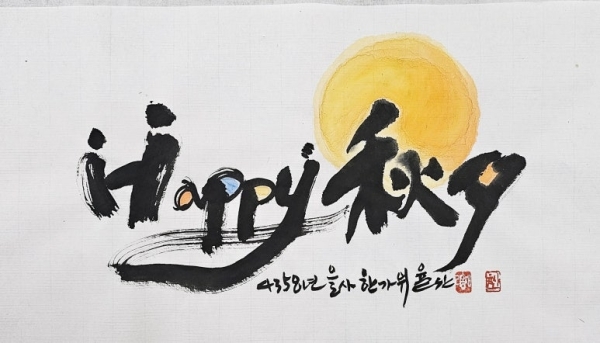 Happy 秋夕
4358년 을사 한가위 율산